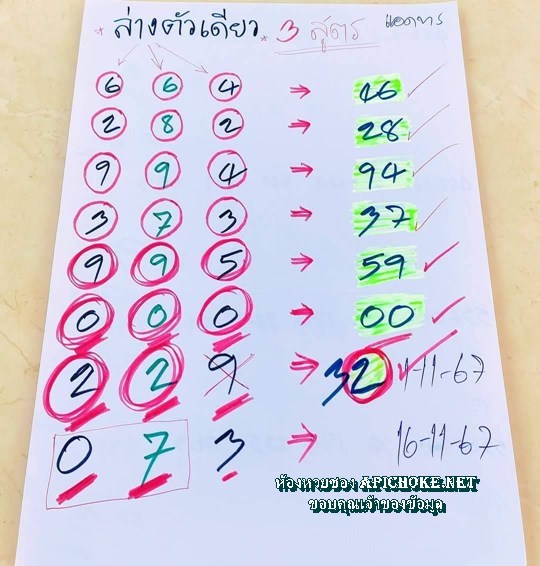 * ล่างตัวเดียว * 3 สูตร แอดทาร
6 6 4 → 46
2 8 2 → 28
9 9 4 → 94
3 7 3 → 37
9 9 5 → 59
0 0 0 → 00
2 2 9 → 32 1-11-67
0 7 3 → 16-11-67
ห้องหวยซอง APICHOKE.NET
ขอบคุณเจ้าของข้อมูล